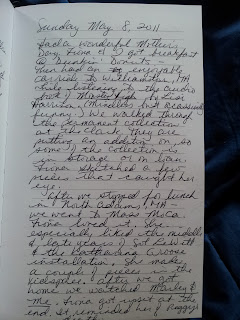 Sunday May 8, 2011
Had a wonderful Mother's
Day. Fiona & I got breakfast
@ Dunkin' Donuts -
then had an enjoyable
car ride to Williamstown, MA
while listening to the audio
book of
Harrison (mindless but occasionally
funny). We walked through
the permanent collection
at the Clark. They are
putting an addition on so
some of the collection is
in storage or on loan.
Fiona sketched a few
pieces that caught her
eye.
After we stopped for lunch
in North Adams, MA -
we went to Mass Moca.
Fiona loved it. She
especially liked the middle
& late years of Sol LeWitt
& the Katharina Grosse
installation. She made
a couple of pieces in the
Kidspace. After we got
home we watched Marley &
Me. Fiona got upset at the
end. It reminded her of Peggy's